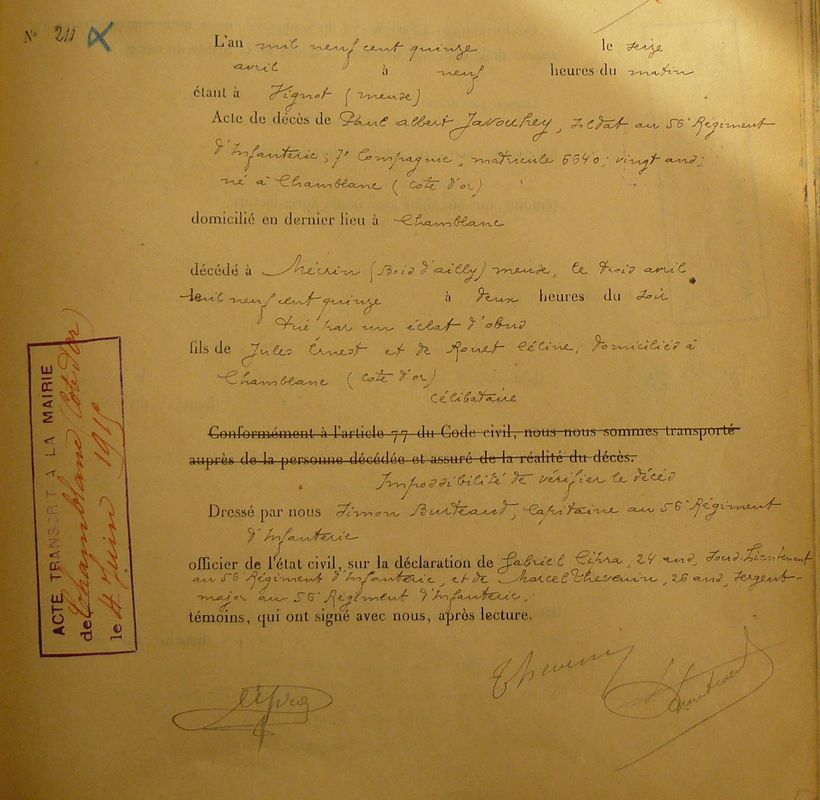 N° 211
L'an mil neuf cent quinze le seize
avril à neuf heures du matin
étant à Vignot (meuse)
Acte de décès de Paul Albert Javouhey, soldat au 56e Régiment
d'Infanterie; 7e Compagnie; matricule 6640; vingt ans;
né à Chamblanc (Cote d'or)
domicilié en dernier lieu à Chamblanc
décédé à Mécrin (Bois d'ailly) meuse, le trois avril
le mil neuf cent quinze à deux heures du soir
tué par un éclat d'obus
fils de Jules Ernest et de Rouet Céline, domiciliés à
Chamblanc (Cote d'or)
célibataire
Conformément à l'article 77 du Code civil, nous nous sommes transporté
auprès de la personne décédée et assuré de la réalité du décès.
Impossibilité de vérifier le décès
Dressé par nous Simon Burteaud, Capitaine au 56e Régiment
d'Infanterie
officier de l'état civil, sur la déclaration de Gabriel Cipra, 24 ans, sous-Lieutenant
au 56e Régiment d'Infanterie, et de Marcel Thevenin, 26 ans, sergent-
major au 56e Régiment d'Infanterie,
témoins, qui ont signé avec nous, après lecture.
Thevenin
Cipra
ACTE TRANSCRIT A LA MAIRIE
de Chamblanc (Côte d'or)
le 4 Juin 1915